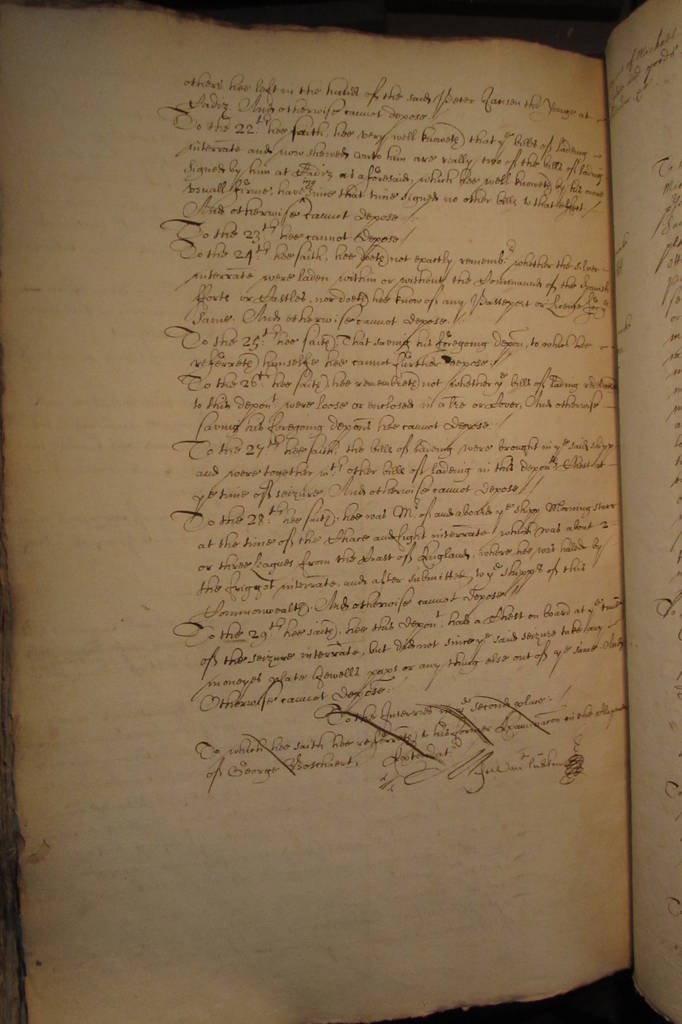 others hee left in the hands of the said Peter Jansen the Younge at
Cadiz. And otherwise cannot depose.
To the 22th hee saith, hee very well knoweth that ye bills of lading
interrate and now shewed unto him are really two of the bills of lading
signed by him at Cadiz as aforesaid, which hee well knoweth by his owne
usuall firme, having since that time signed no other bills to that effect.
And otherwise cannot depose.
To the 23th hee cannot depose.
To the 24th hee saith, hee doeth not exactly rememb whether the silver
interrate were laden within or without the Command of the Spanish
fforts or Castles, nor doeth hee know of any Passeport or License for ye
same. And otherwise cannot depose.
To the 25th hee saith, That saving his foregoing depon, to which hee
referreth himselfe hee cannot further depose.
To the 26th hee saith hee remembreth not whether ye bills of lading
to this depont were loose or enclosed in a lre or Cover, And otherwise
saving his foregoing depons hee cannot depose.
To the 27th hee saith, the bills of lading were brought in ye said shipp
and were together wth other bills of ladeing in this deponts Chest at
ye time of seizure. And otherwise cannot depose.
To the 28th hee saith, hee was Mr of and aboard ye shipp Morning Starr
at the time of the Chace and fight interrate which was about 2
or three leagues from the Coast of England, where hee was haled by
the friggot interrate, and after submitted to ye shipps of this
Commonwealth. And otherwise cannot depose.
To the 29th hee saith, hee this depont had a Chest on board at ye time
of the seizure interrate, but did not since ye said seizure take any
moneyes plate Jewells paps or any thing else out of ye same. And
Otherwise cannot depose.
To the Interries in ye second place.
To which hee saith hee referreth to his former Examinacon in the
of George Boschaert.